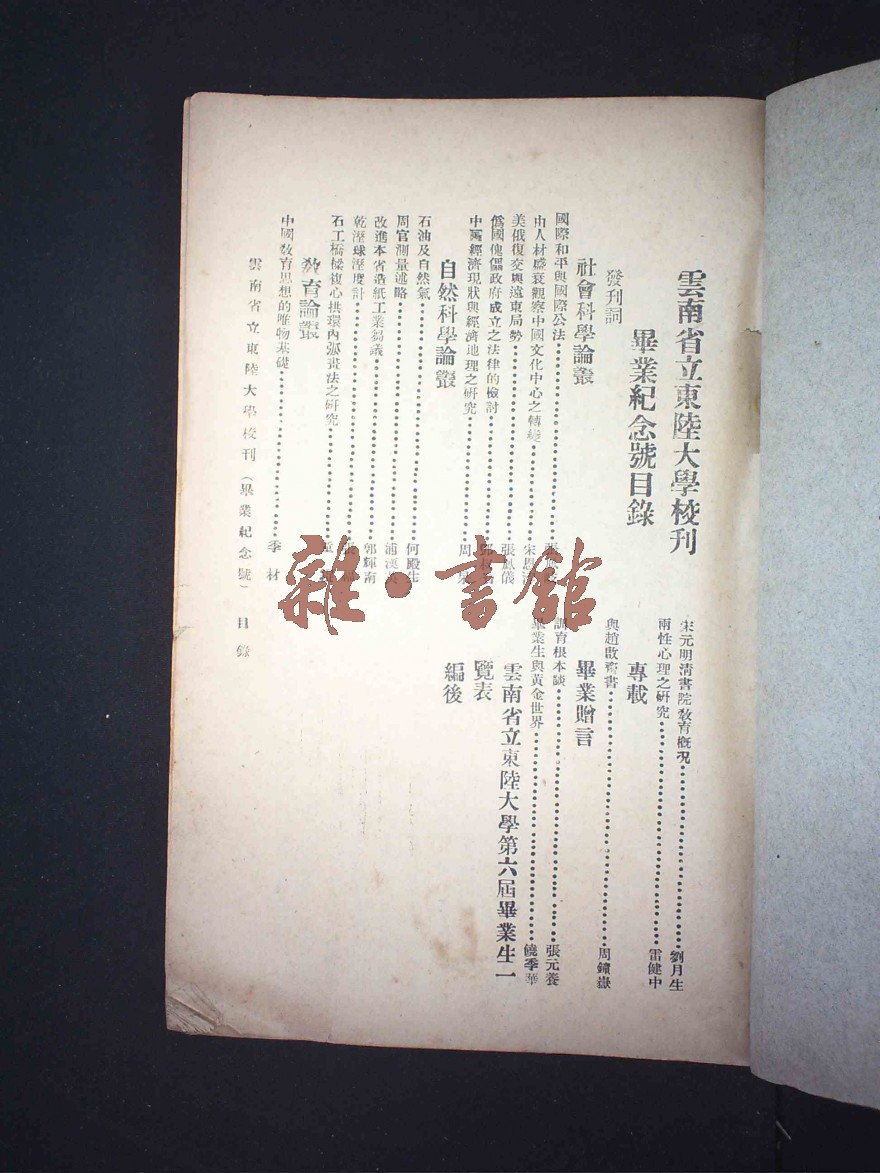 雲南省立東陸大學校刊
畢業紀念號目錄
發刊詞
社會科學論叢
國際和平與國際公法
由人材盛衰觀察中國文化中心之轉變
美俄復交與遠東局勢
僞國傀儡政府成立之法律的檢討
中國經濟現狀與經濟地理之研究
自然科學論叢
石油及自然氣 何殿生
周官測量述略
改進本省造紙工業芻議 郭輝南
乾溼球溼度計
石工橋樑複心拱環內弧畫法之研究
敎育論叢
中國敎育思想的唯物基礎 季材
宋元明淸書院敎育槪况 劉月生
兩性心理之研究 雷健中
專載
與趙啟齋書 周鐘嶽
畢業贈言
訓育根本談 張元養
畢業生與黃金世界 饒季華
雲南省立東陸大學第六屆畢業生一
覽表
編後
雲南省立東陸大學校刊（畢業紀念號）目錄
雜·書館